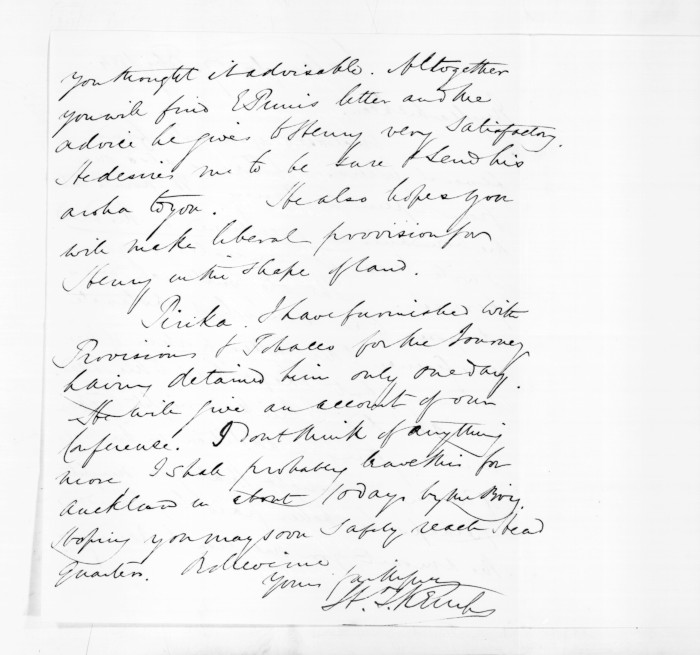 you thought it advisable. Altogether
you will find E Puni's letter and the
advice he gives to Henry very satisfactory.
He desires me to be sure & send his
aroha to you. He also hopes you
will make liberal provision for
Henry in the shape of land.
Pirika. I have furnished with
Provisions & Tobacco for the Journey
having detained him only one day.
He will give an account of our
Conference. I dont think of anything
more I shall probably leave this for
Auckland in about 10 days by the Brig.
Hoping you may soon safely reach Head
Quarters. Believe me
Yours faithfully
H. T. Kemp